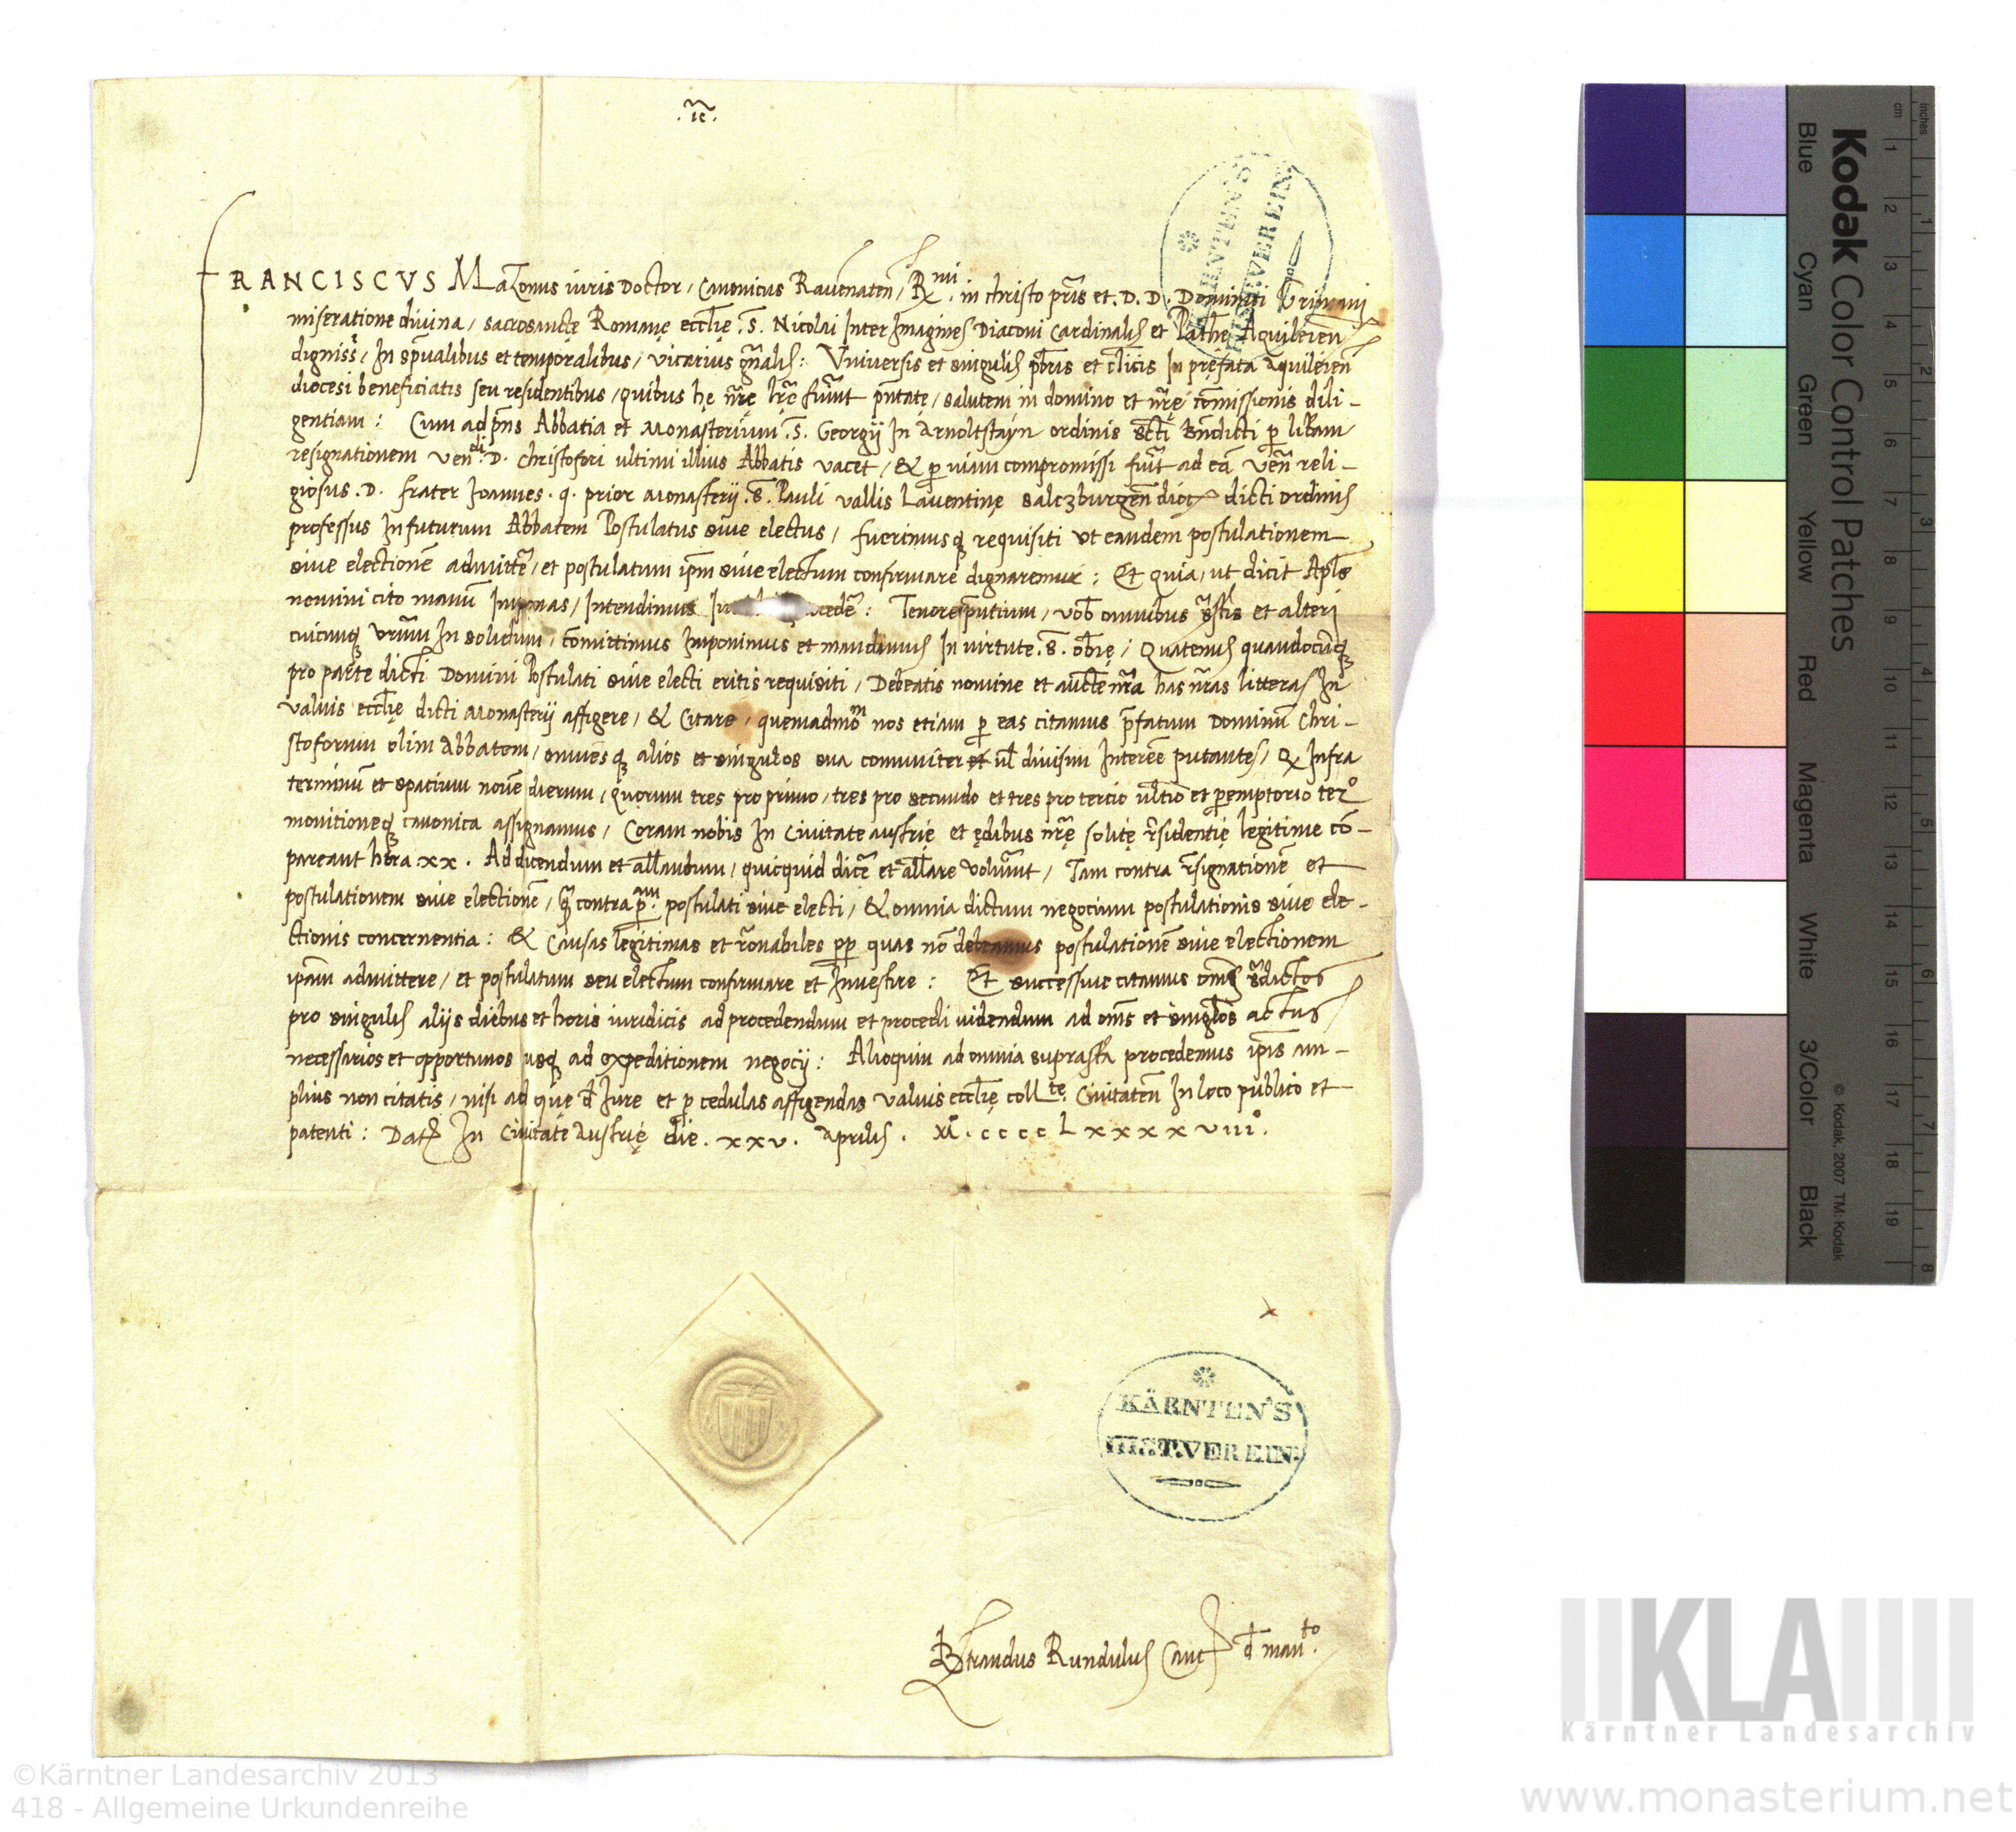 .ic̃.
FRANCISCVS Mazonus iuris Doctor / Canonicus Rauennateñ / R.mi in christo pr̃is et . D . D . Dominici Grimani
miseratione diuina / sacrosanctę Romanę eccl̃ię . S . Nicolai Inter Imagines Diaconi Cardinalis et Pat̃he Aquileieñ
digniss̃ / In sp̃ualibus et temporalibus / vicarius gñalis : Vniuersis et singulis p̃bris et cl̃icis In pręfata aquileieñ
diocesi beneficiatis seu residentibus / quibus hę nr̃ę lr̃ę fuer̃int pñtatę / salutem in domino et nr̃ę com̃issionis dili-
gentiam : Cum ad pñs Abbatia et Monasterium . S . Georgij In Arnoltstayn ordinis sc̃ti Bñdicti p libãm
resignationem Veñ.di D . Christofori ultimi illius Abbatis vacet / & p uiam compromissi fuer̃it ad eã Veñ reli-
giosus . D . frater Joannes . q . prior Monasterij . S . Pauli vallis Lauentinę Salczburgeñ dioc̃ dicti ordinis
professus In futurum Abbatem Postulatus siue electus / fuerimusq3 requisiti ut eandem postulationem
siue electionẽ admittẽ / et postulatum ip̃m siue electum confirmare dignaremur : Et quia / ut dicit Apl̃s
nemini cito manũ Imponas / Intendimus procedẽ : Tenore pñtium / vob̃ omnibus sup̃stis et alteri
cuicunq3 vrum̃ In solidum / com̃ittimus Imponimus et mandamus In uirtute . S . ob̃ię / Quatenus quandocũq3
pro parte dicti Domini Postulati siue electi eritis requisiti / Debeatis nomine et aucte nr̃a has nr̃as litteras In
valuis eccl̃ię dicti Monasterij affigere / & Citare / quemadmom nos etiam p eas citamus p̃fatum Dominũ Chri-
stoforum olim Abbatem / omnesq3 alios et singulos sua comuniter et ul̃ diuisim Interẽe putantes / Q Infra
terminũ et spacium nouẽ dierum / quorum tres pro primo / tres pro secundo et tres pro tercio ultĩo et pemptorio ter.o
monitioneq3 canonica assignamus / Coram nobis In Ciuitate austrię et ędibus nr̃ę solitę r̃sidentię legitime cõ-
pareant hora . xx . Ad dicendum et all̃andum / quicquid dicẽ et all̃are voluer̃int / Tam contra r̃signationẽ et
postulationem siue electionẽ / q̃ contra p.nam postulati siue electi / & omnia dictum negocium postulationis siue ele-
ctionis concernentia : & Causas legitimas et r̃onabiles pp quas nõ debeamus postulationẽ siue electionem
ipam admittere / et postulatum seu electum confirmare et Inuestire : Et successiue citamus om̃s s̃dictos
pro singulis alijs diebus et horis iuridicis ad procedendum et procedi uidendum ad om̃s et singl̃os actus
necessarios et opportunos usq3 ad expeditionem negocij : Alioquin ad omnia suprasta procedemus ip̃is am-
plius non citatis / nisi ad quę d̃ Iure et p cedulas affigendas valuis eccl̃ię coll.tę Ciuitateñ In loco publico et
patenti : Dat̃ In Ciuitate Austrię die . xxv . Aprilis . M̃ . cccc L xxxx viii.o
KÄRNTEN'S
HIST.VEREIN.
KÄRNTEN'S
HIST.VEREIN.
B̃trandus Rundulus Canc̃ d̃ man.to
Kodak Color Control Patches
Blue Cyan Green Yellow Red Magenta White 3/Color Black
© Kodak, 2007 TM: Kodak
inches 1 2 3 4 5 6 7 8
cm 1 2 3 4 5 6 7 8 9 10 11 12 13 14 15 16 17 18 19
KLA
Kärntner Landesarchiv
©Kärntner Landesarchiv 2013
418 - Allgemeine Urkundenreihe
www.monasterium.net